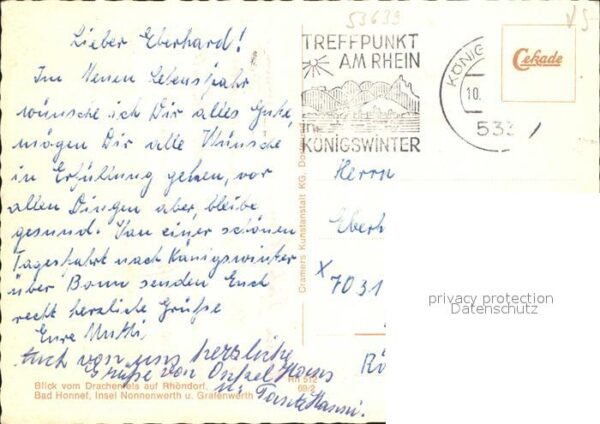 53639
Lieber Eberhard!
Im Neuen Lebensjahr
wünsche ich Dir alles Gute,
mögen Dir alle Wünsche
in Erfüllung gehen, vor
allen Dingen aber, bleibe
gesund. Von einer schönen
Tagesfahrt nach Königswinter
über Bonn senden Euch
recht herzliche Grüße
Eure Mutti
Auch von uns herzliche
Grüße von Onkel Hans
u. Tante Hanni.
Blick vom Drachenfels auf Rhöndorf,
Bad Honnef, Insel Nonnenwerth u. Grafenwerth
RH 512
69/2
Cramers Kunstanstalt KG, Do
TREFFPUNKT
AM RHEIN
in
KÖNIGSWINTER
KÖNIG
10.
533
Cekade
Herrn
Eberh
x
7031
Rö
privacy protection
Datenschutz